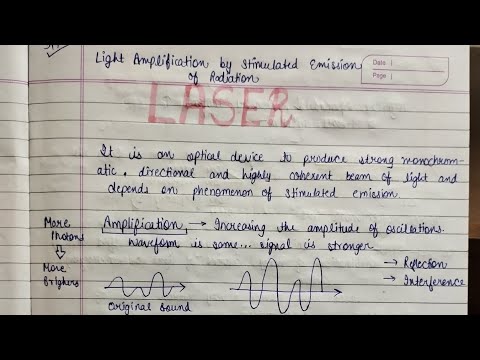 Light Amplification by Stimulated Emission
of Radiation
Date
Page
LASER
It is an optical device to produce strong monochrom-
atic, directional and highly coherent beam of light and
depends on phenomenon of stimulated emission.
More
Photons
More
Brighters
Amplification → Increasing the amplitude of oscillations.
Waveform is same... signal is stronger
→ Reflection
→ Interference
Original Sound